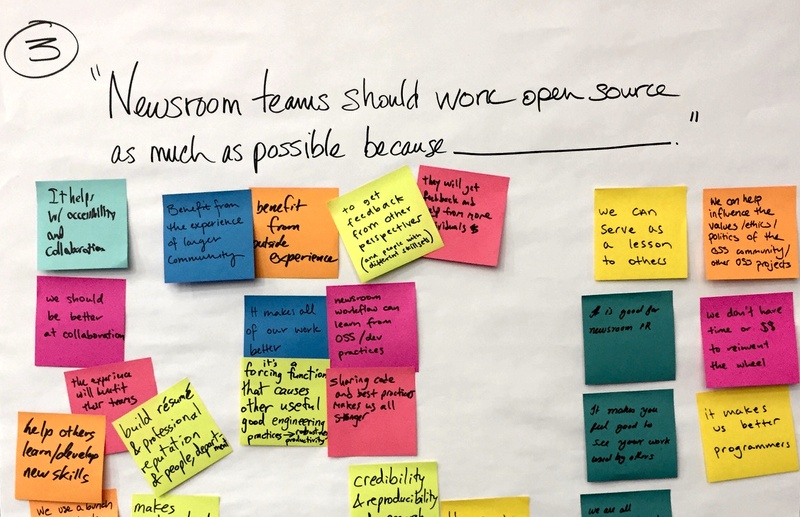 3
"Newsroom teams should work open source
as much as possible because ________."
It helps
w/ accessibility
and
collaboration
Benefit from
the experience
of larger
community
benefit
from
outside
experience
to get
feedback
from other
perspectives
(and people with
different skillsets)
they will get
feedback and
from more
we can
serve as
a lesson
to others
We can help
influence the
values/ethics/
politics of the
OSS community/
other OSS projects
we should
be better
at collaboration
It makes all
of our work
better
newsroom
workflow can
learn from
OSS/dev
practices
It is good for
newsroom PR
we don't have
time or $$
to reinvent
the wheel
the experience
will benefit
their teams
build résumé
& professional
reputation
& people, department
it's a
forcing function
that causes
other useful
good engineering
practices →
productivity
Sharing code
and best practices
makes us all
help others
learn/develop
new skills
It makes you
feel good to
see your work
used by others
it makes
us better
programmers
credibility
& reproducibility
we use a bunch
makes
we are all